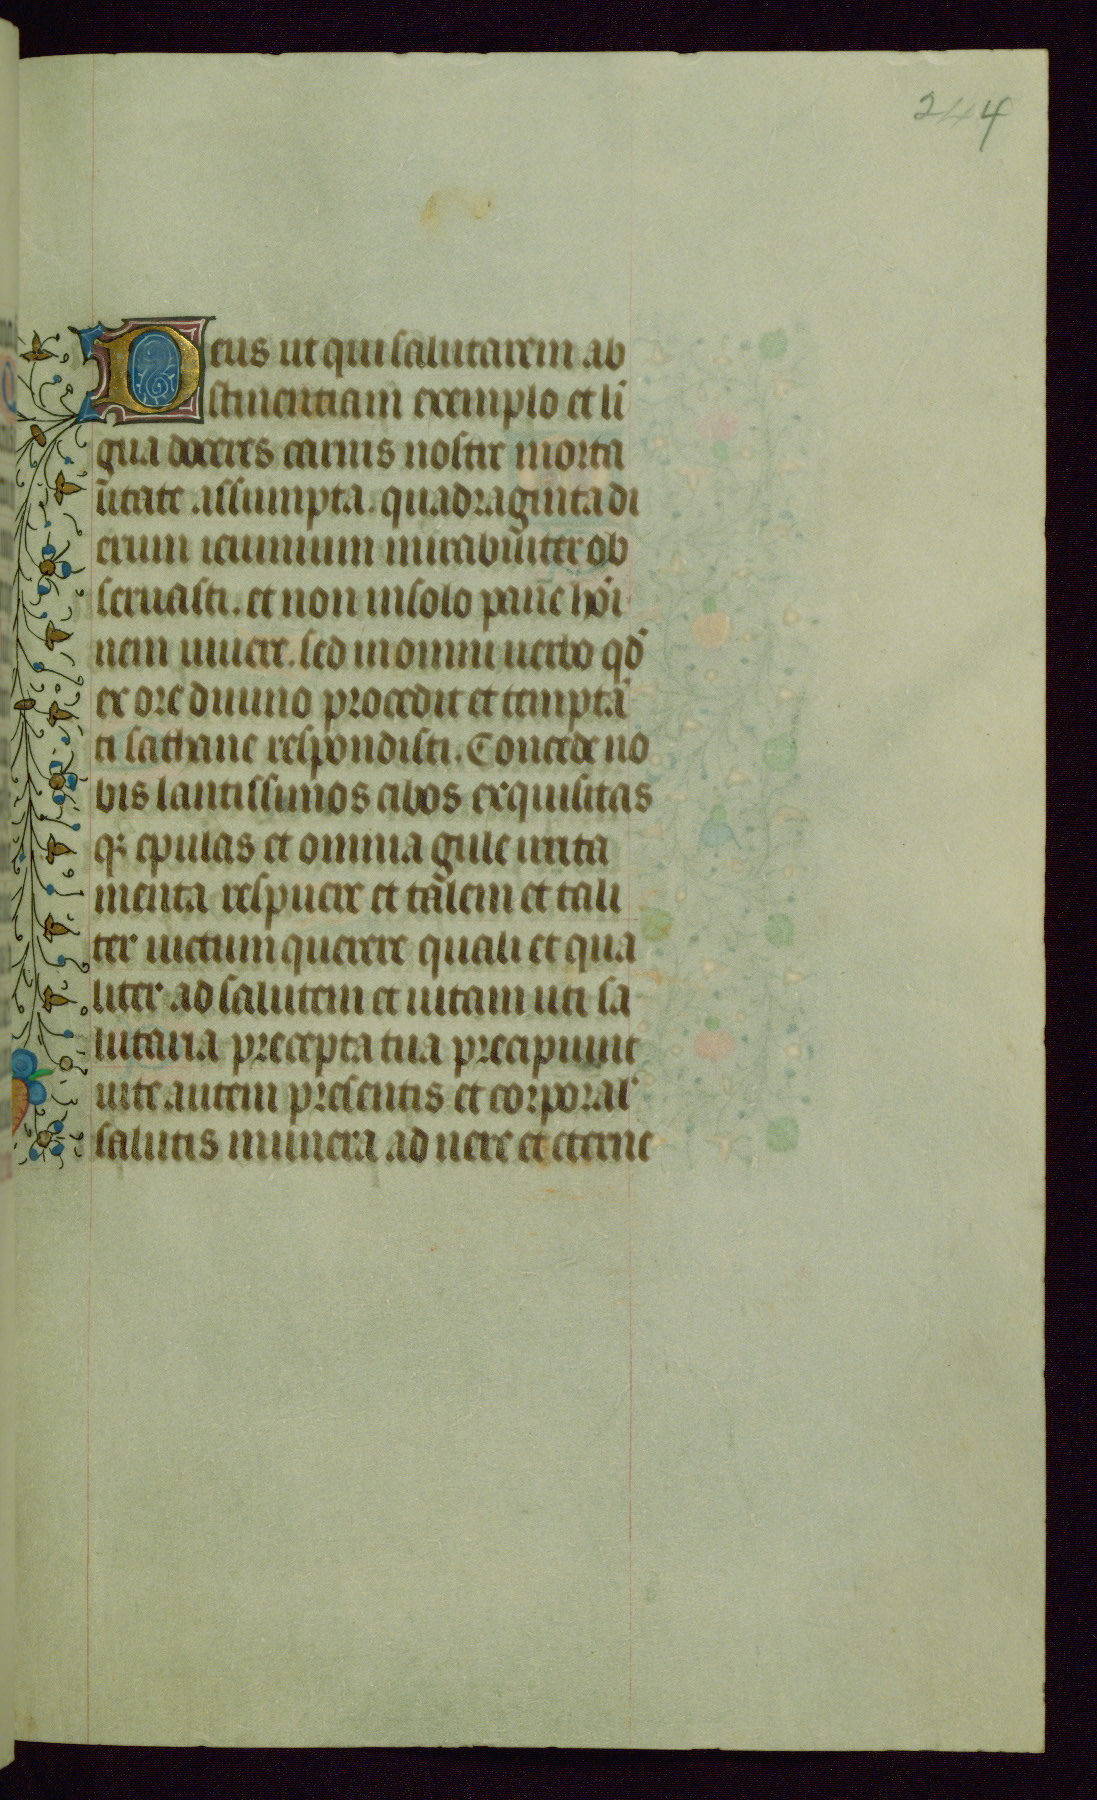 244
Deus ut qui salutarem ab
stinentiam exemplo et li
gua doceres carnis nostre morta
litate assumpta. quadraginta di
erum ieiunium mirabiliter ob
seruasti. et non insolo pane hōi
nem uiuere. sed inomni uerbo qd̄
ex ore diuino procedit et temptā
ti sathane respondisti. Concede no
bis lautissimos cibos exquisitas
q; epulas et omnia gule irrita
menta respuere et talem et tali
ter uictum querere quali et qua
liter ad salutem et uitam uti sa
lutaria precepta tua precipiunt
uite autem presentis et corporal'
salutis munera ad uere et eterne